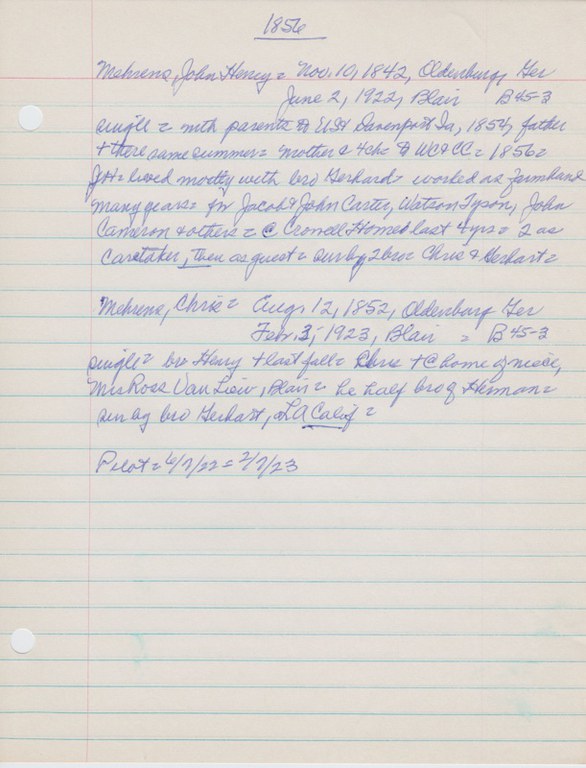 1856
Mehrens, John Henry = Nov. 10, 1842, Oldenburg, Ger
June 2, 1922, Blair B 45-3
single = with parents to USA Davenport Ia, 1854, father
+ there same summer = mother & 4 ch = to WC & CC = 1856 =
JH = lived mostly with bro Gerhard = worked as farmhand
many years = for Jacob & John Carter, Watson Tyson, John
Cameron & others = @ Crowell Home last 4 yrs = 2 as
caretaker, then as guest = sur by 2 bro = Chris & Gerhart =
Mehrens, Chris = Aug. 12, 1852, Oldenburg Ger
Febr. 3, 1923, Blair = B 45-3
single = bro Henry + last fall = Chris + @ home of niece,
Mrs Ross Van Liew, Blair = he half bro of Herman =
sur by bro Gerhart, LA Calif =
Pilot = 6/7/22 = 2/7/23